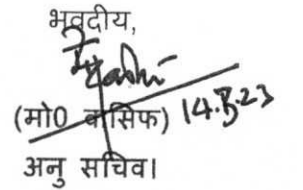 भवदीय,
(मो0 वासिफ) 14.8.23
अनु सचिव।